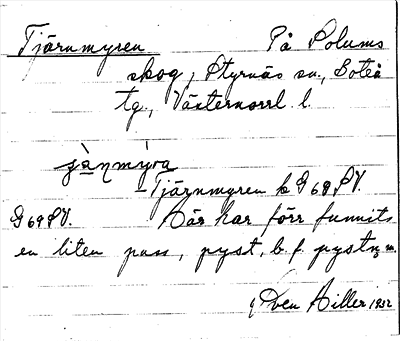 Tjärnmyren På Solums
skog, Styrnäs sn., Boteå
tg., Västernorrl. l.
jànmýra
Tjärnmyren k G 69 SV.
G 69 SV. Här har förr funnits
en liten puss, pyst, b. f. pystn̥ m.
Sven Hiller 1932